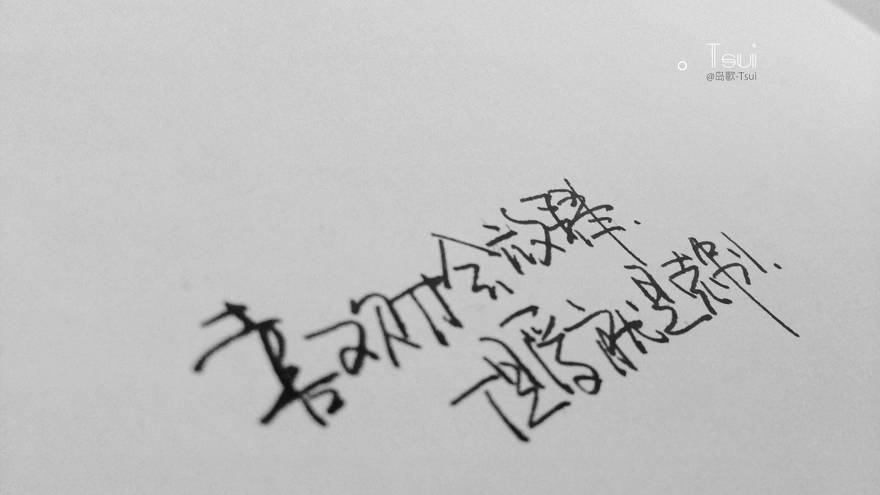 Tsui
@岛歌-Tsui
喜欢才会放肆.
但爱就是克制.